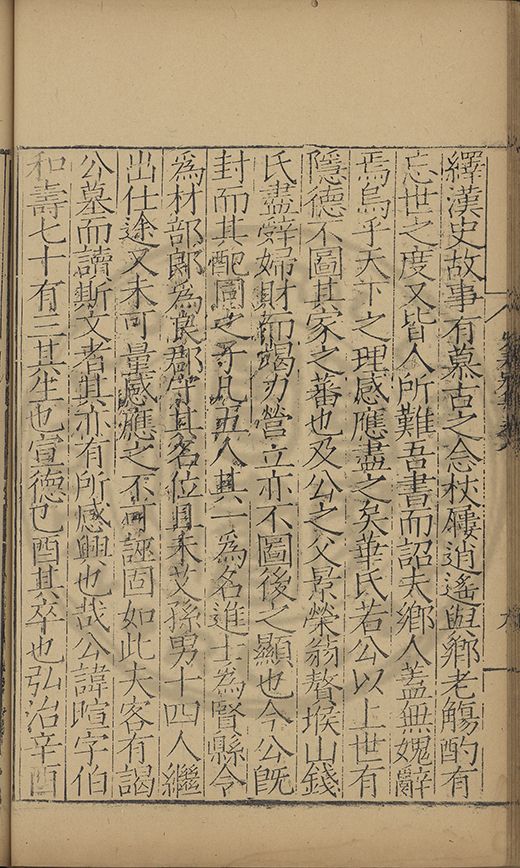 繹漢史故事有慕古之念杖屨逍遙與鄉老觴酌有
忘世之度又皆人所難吾書而詔夫鄉人蓋無媿辭
焉烏乎天下之理感應盡之矣華氏若公以上世有
隱德不圖其家之蕃也及公之父景榮翁贅堠山錢
氏盡辭婦財而竭力營立亦不圖後之顯也今公旣
封而其配同之子凡五人其一為名進士為賢縣令
為材部郎為良郡守其名位且未艾孫男十四人繼
出仕途又未可量感應之不可誣固如此夫客有謁
公墓而讀斯文者其亦有所感興也哉公諱暄字伯
和壽七十有三其生也宣德己酉其卒也弘治辛酉